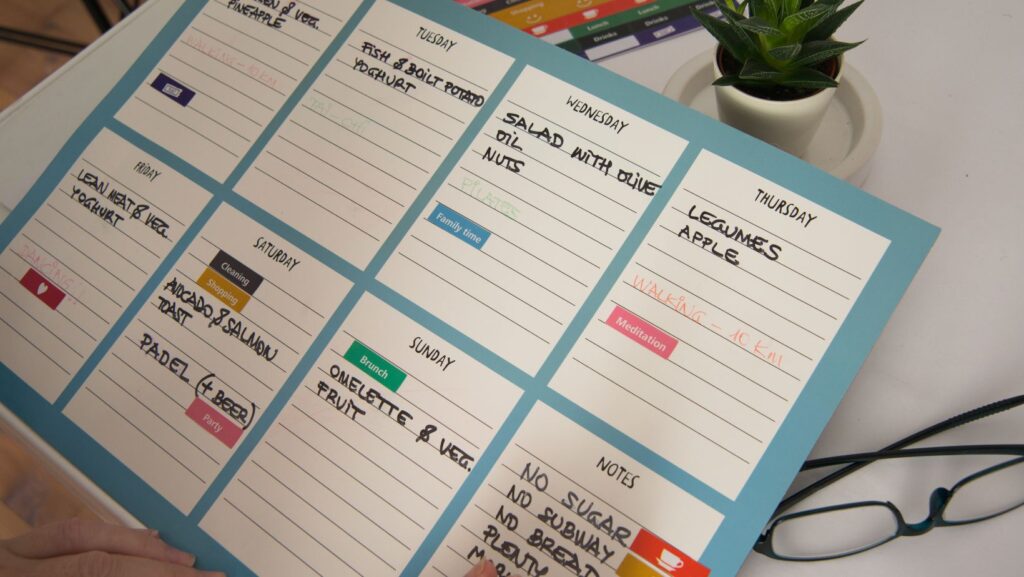 & VEG.
PINEAPPLE
WALKING - 10 KM
TUESDAY
FISH & BOILT POTATO
YOGHURT
TAI-CHI
WEDNESDAY
SALAD WITH OLIVE
OIL
NUTS
PILATES
Family time
THURSDAY
LEGUMES
APPLE
WALKING - 10 KM
Meditation
FRIDAY
LEAN MEAT & VEG.
YOGHURT
DANCING!
SATURDAY
Cleaning
Shopping
AVOCADO & SALMON
TOAST
PADEL (+ BEER)
Party
SUNDAY
Brunch
OMELETTE & VEG.
FRUIT
NOTES
NO SUGAR
NO SUBWAY
NO BREAD
PLENTY
Shopping
Lunch
Drinks
Drinks